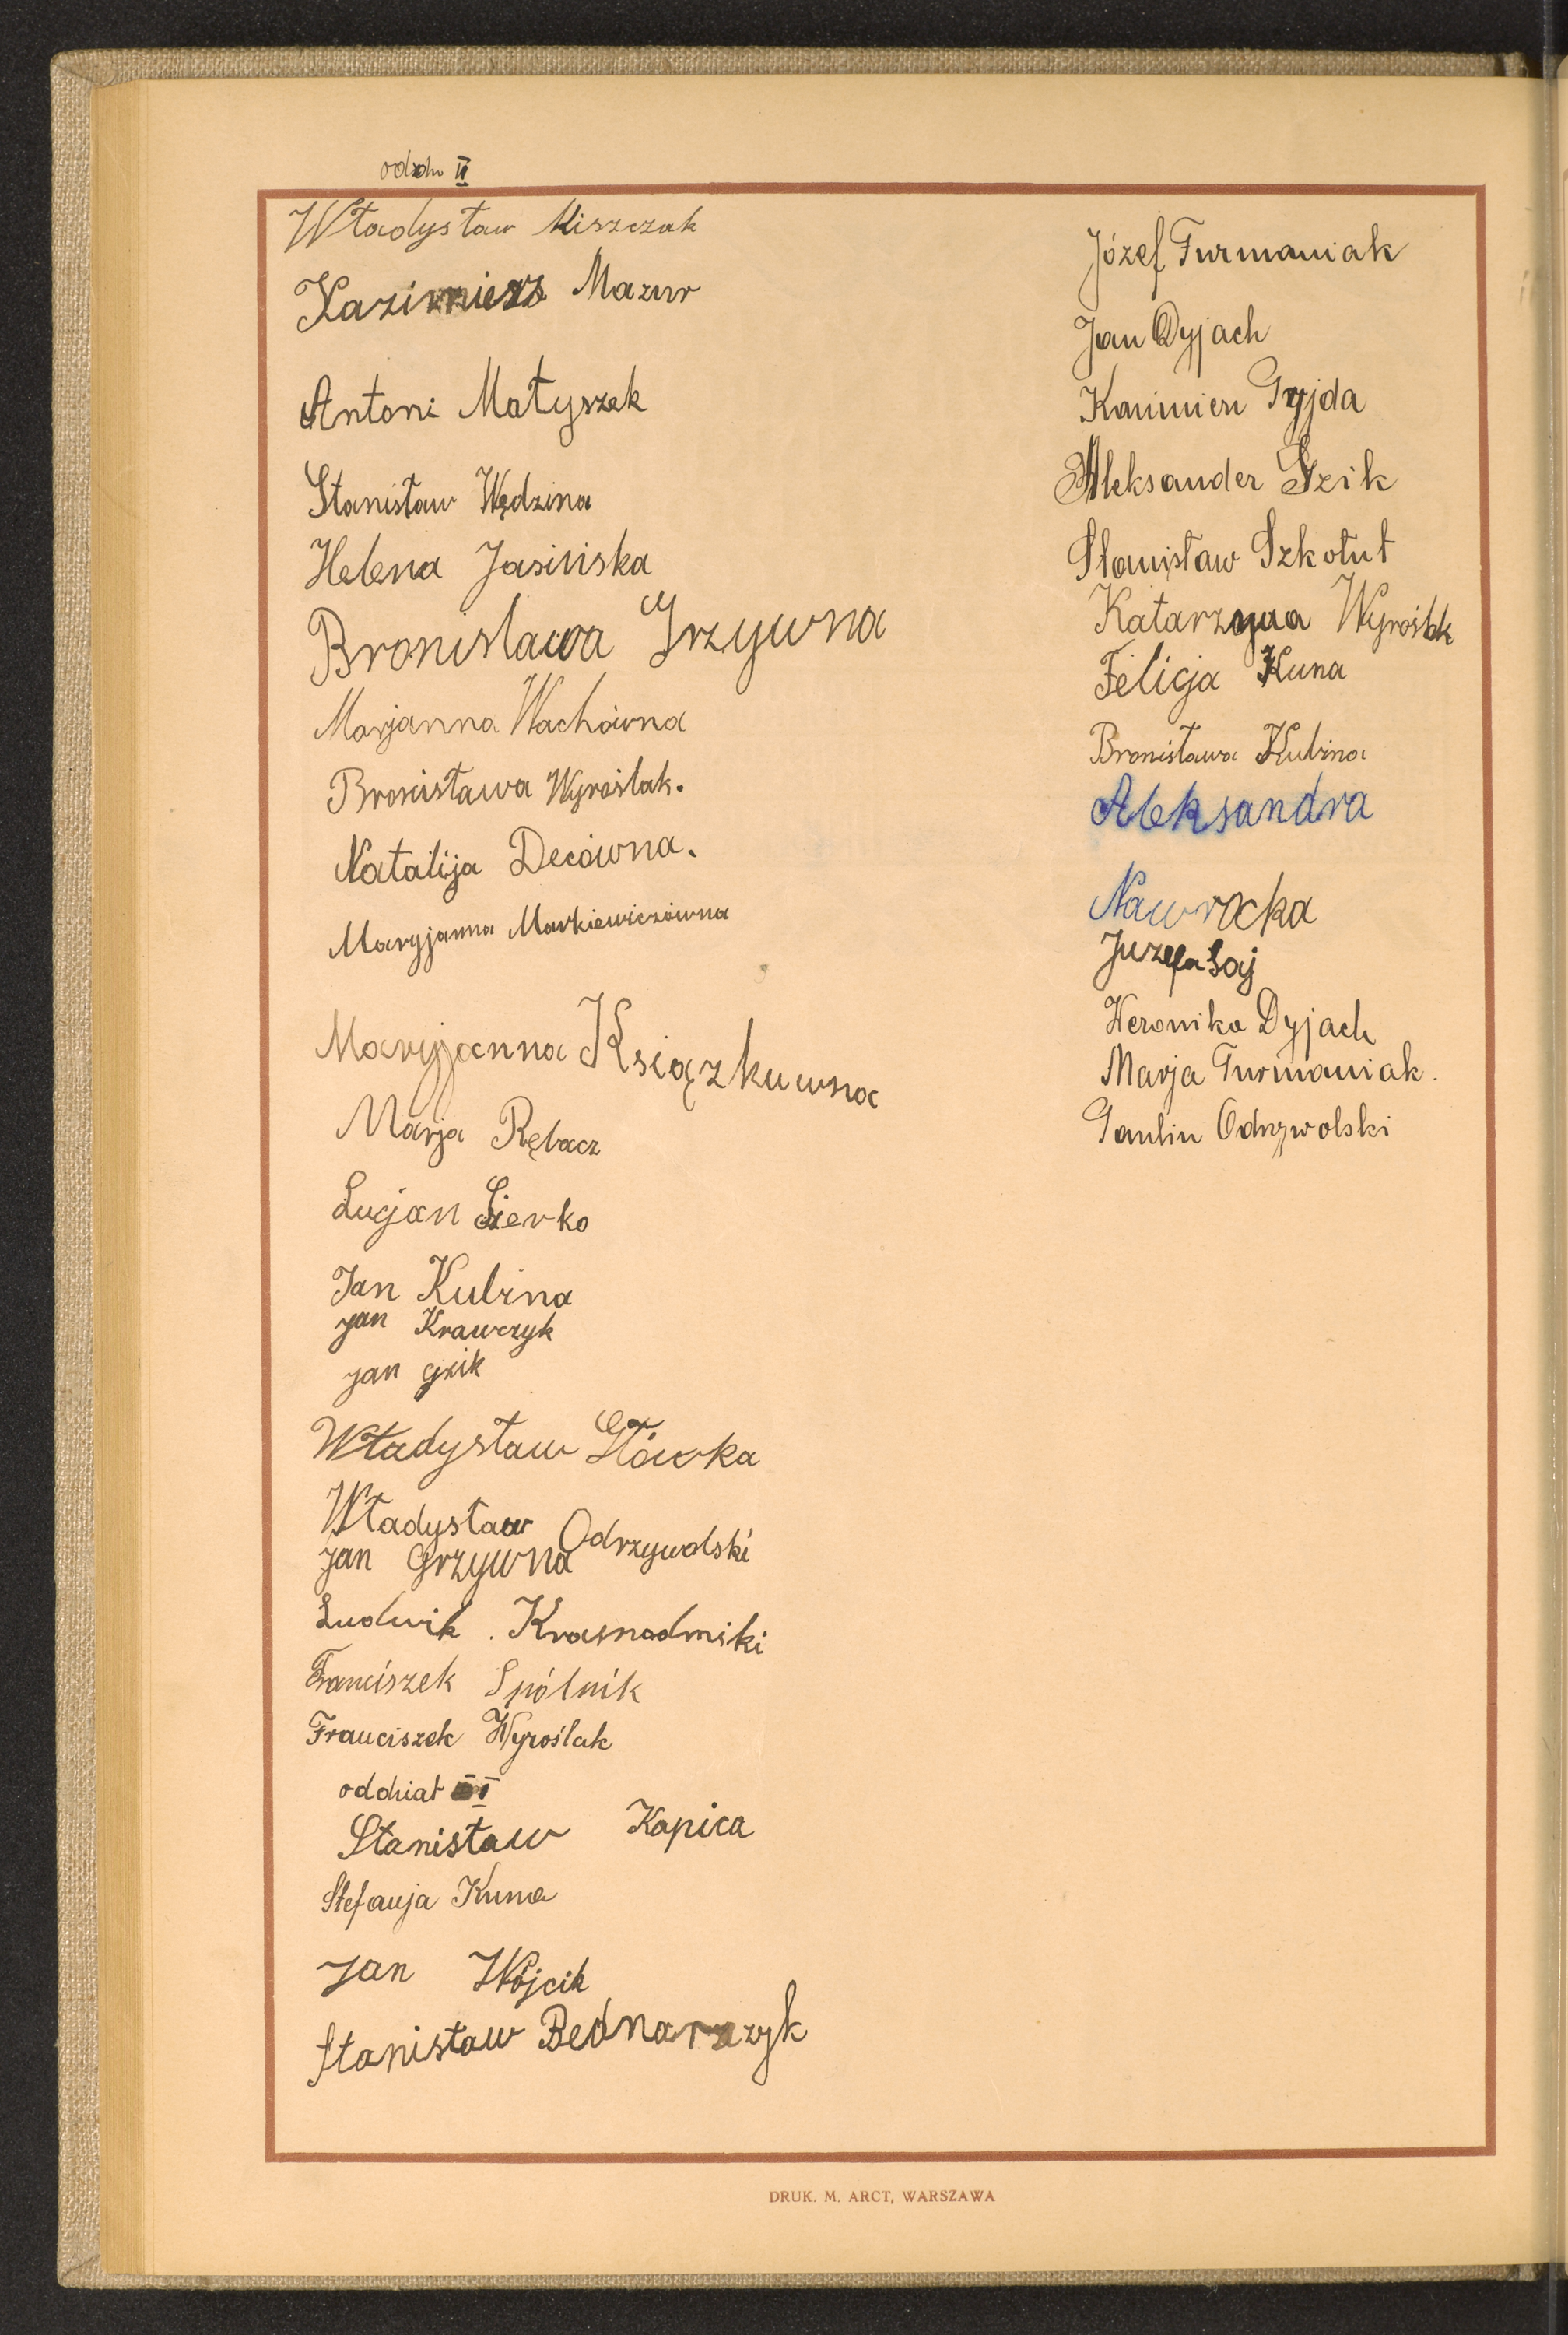 oddz II
Władysław Miszczak
Kazimierz Mazur
Antoni Matyszek
Stanisław Wędzina
Helena Jasińska
Bronisława Grzywna
Marjanna Wachówna
Bronisława Wyroślak.
Natalija Decówna.
Maryjanna Markiewiczówna
Maryjanna Książkuwna
Marja Rębacz
Lucjan Sierko
Jan Kubina
jan Krawczyk
jan gzik
Władysław Główka
Władysław Odrzywolski
jan grzywna
Ludwik Krasnodmski
Franciszek Spólnik
Franciszek Wyroślak
oddział III
Stanisław Kapica
Stefanja Kuna
Jan Wójcik
Stanisław Bednarzyk
Józef Furmaniak
Jan Dyjach
Kazimierz Gryjda
Aleksander Gzik
Stanisław Szkołut
Katarzyna Wyroślak
Felicja Kuna
Bronisława Kubina
Aleksandra
Nawrocka
Juzefa Saj
Weronika Dyjach
Marja Furmaniak.
Paulin Odrzywolski
DRUK. M. ARCT, WARSZAWA